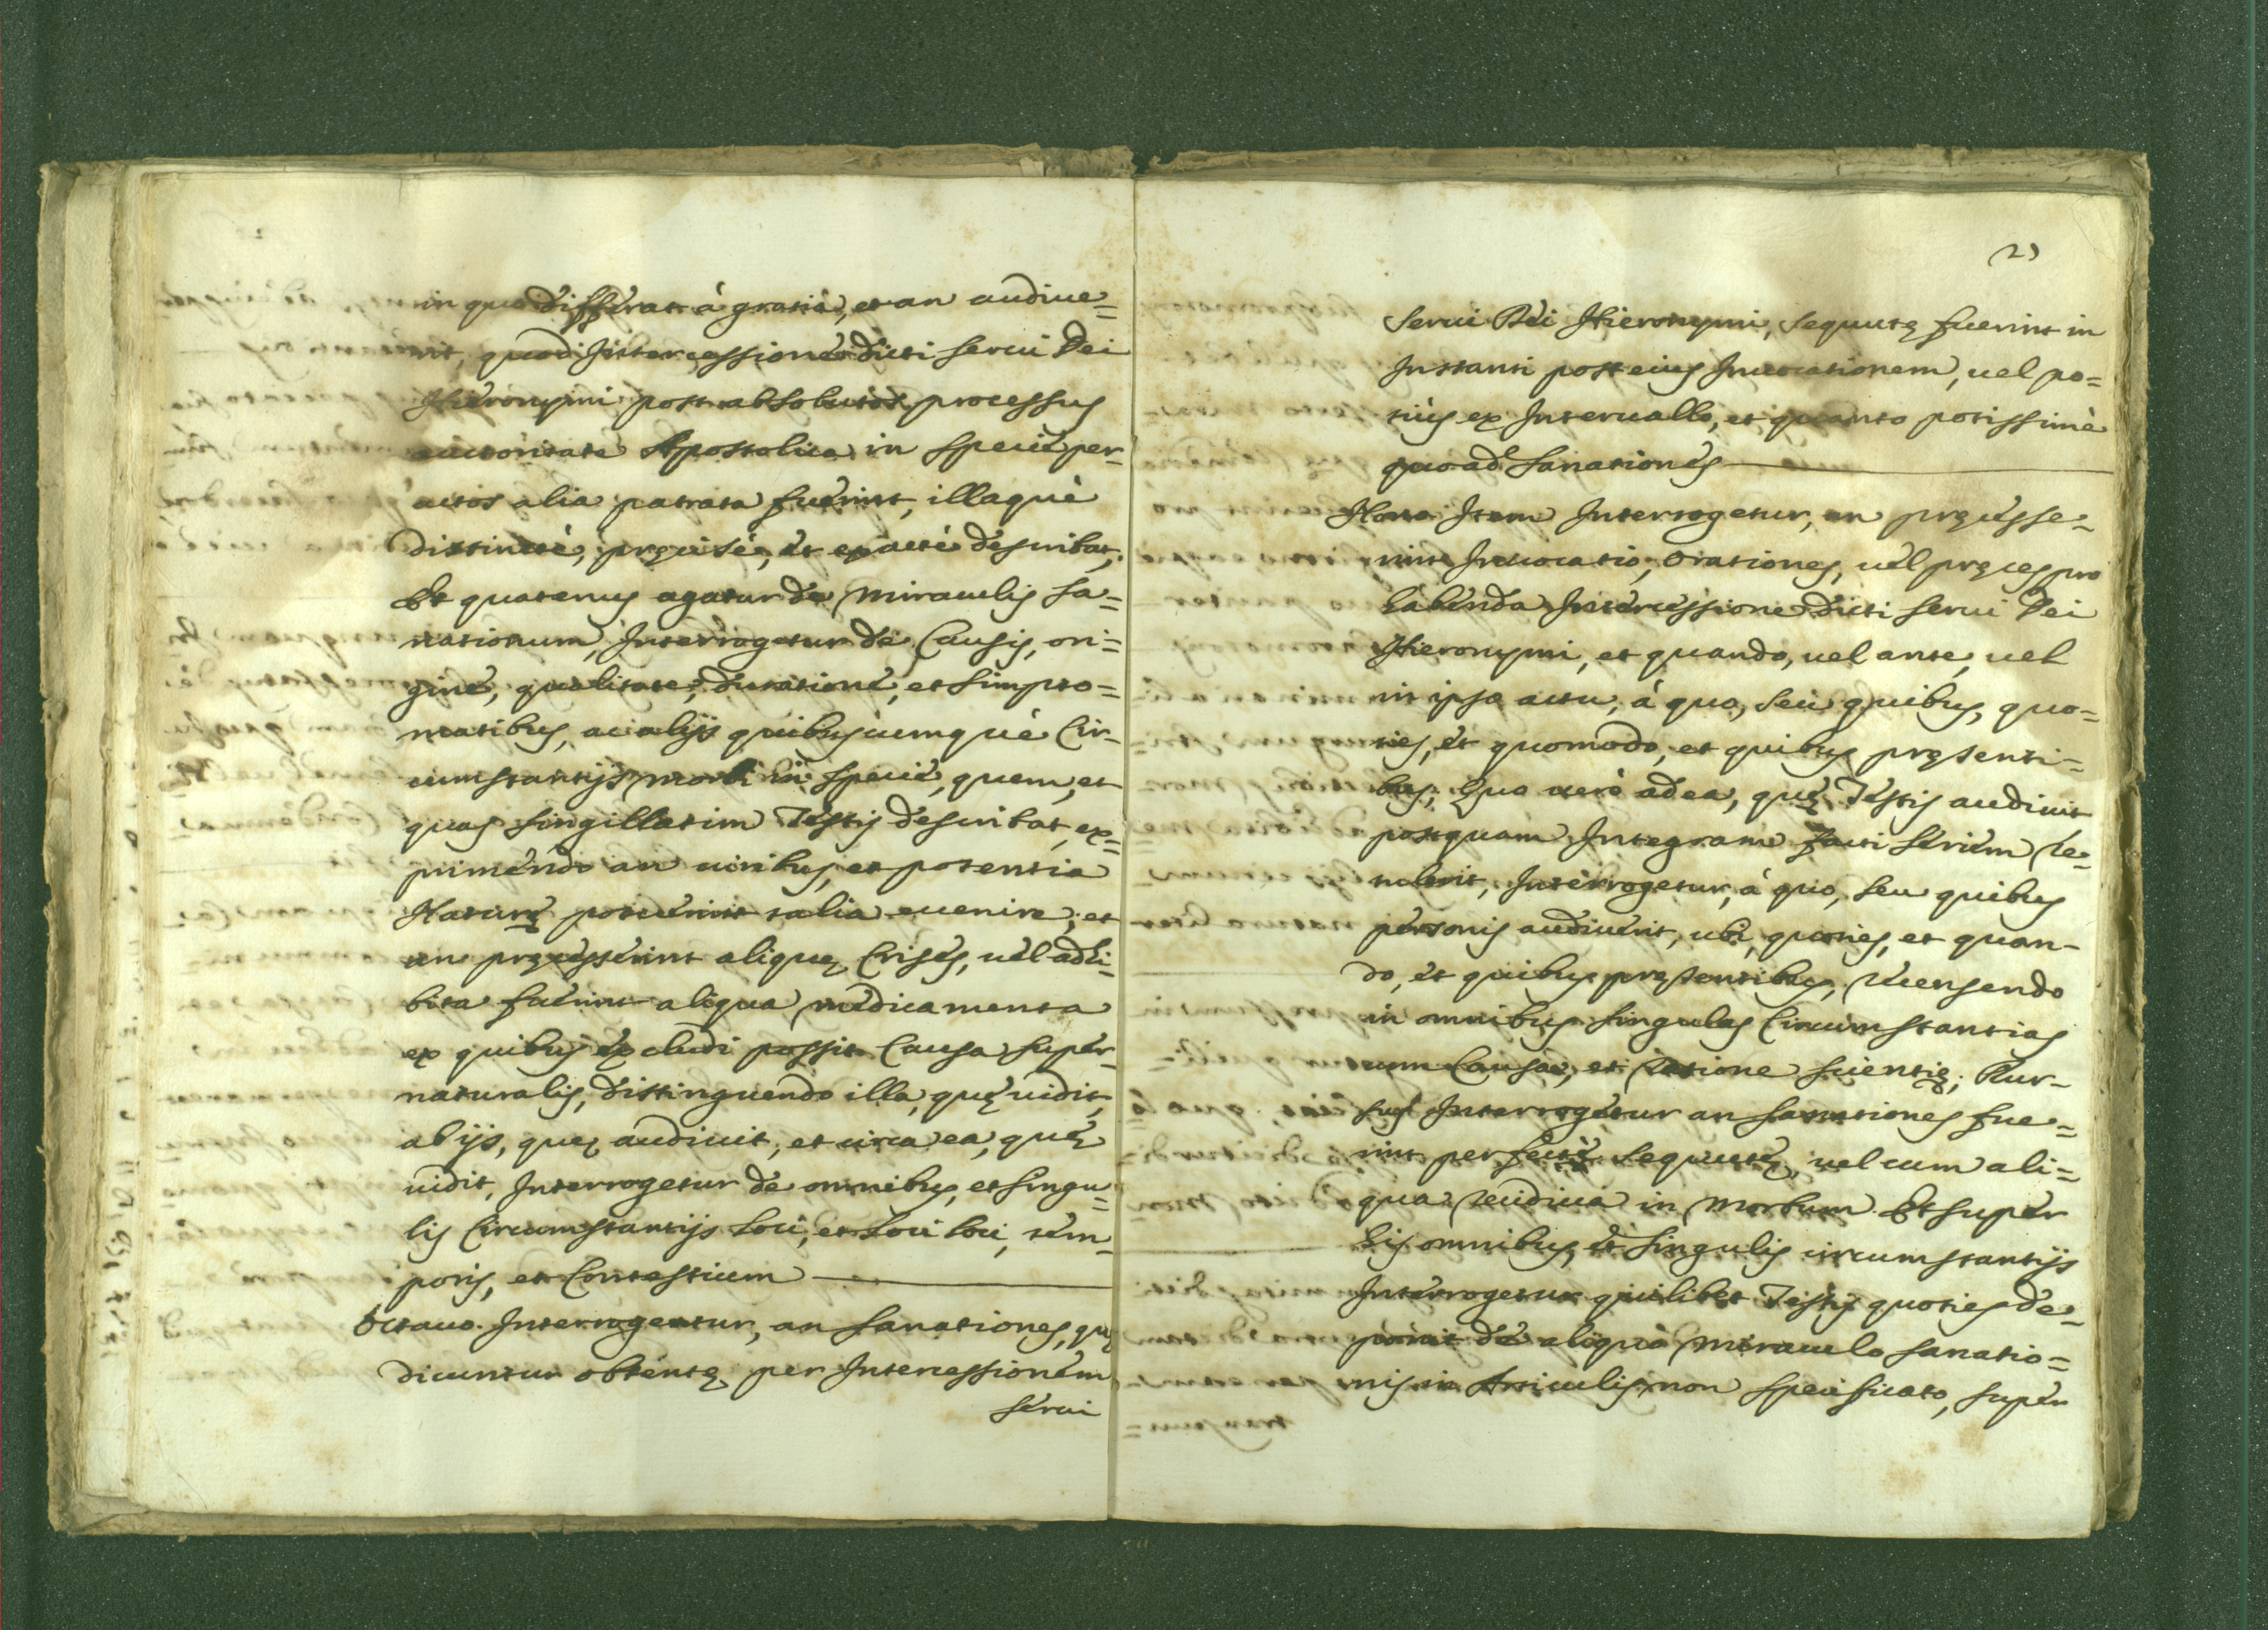 in quo differat à gratia, et an audiue=
rit, quod Intercessione dicti serui Dei
Hieronymi post absolutos processus
auctoritate Apostolica in specie per-
actos alia patrata fuerint, illaquè
distinctè, pręcisè, et exactè describat;
Et quatenus agatur de Miraculis sa=
nationum, Interrogetur de Causis, ori=
gine, qualitate, duratione, et simpto=
matibus, ac alijs quibuscumquè Cir-
cumstantijs morbi in specie, quem, et
quas singillatim Testis describat, ex=
primendo an uiribus, et potentia
Naturę potuerint talia euenire, et
an pręcesserint aliquę Crises, uel adhi-
bita fuerint aliqua medicamenta
ex quibus excludi possit Causa super-
naturalis, distinguendo illa, quę uidit,
ab ijs, quę audiuit, et circa ea, quę
uidit, Interrogetur de omnibus, et singu=
lis Circumstantijs loci, et loci loci, tem-
poris, et Contestium
Octauo. Interrogeatur, an sanationes, quę
dicuntur obtentę per Intercessionem
serui
23
serui Dei Hieronymi, sequutę fuerint in
Instanti post eius Inuocationem, uel po=
tiùs ex Interuallo, et quanto potissimè
quoad sanationes
Nono Item Interrogetur, an pręcesse-
rint Inuocatio, orationes, uel pręces pro
habenda Intercessione dicti serui Dei
Hieronymi, et quando, uel ante, uel
in ipso actu, à quo, seù quibus, quo=
ties, et quomodo, et quibus pręsenti=
bus; Quo uerò ad ea, quę Testis audiuit
postquam Integram facti seriem re-
tulerit, Interrogetur, à quo, seu quibus
personis audiuerit, ubi, quoties, et quan-
do, et quibus pręsentibus, recensendo
in omnibus singulas Circumstantias
cum Causa, et ratione scientię; Rur-
sus Interrogetur an sanationes fue=
rint perfectè sequutę, uel cum ali=
qua recidiua in Morbum Et super
his omnibus, et singulis circumstantijs
Interrogetur quilibet Testis quoties de=
ponit de aliquo miraculo sanatio=
nis in Articulis non specificato, super